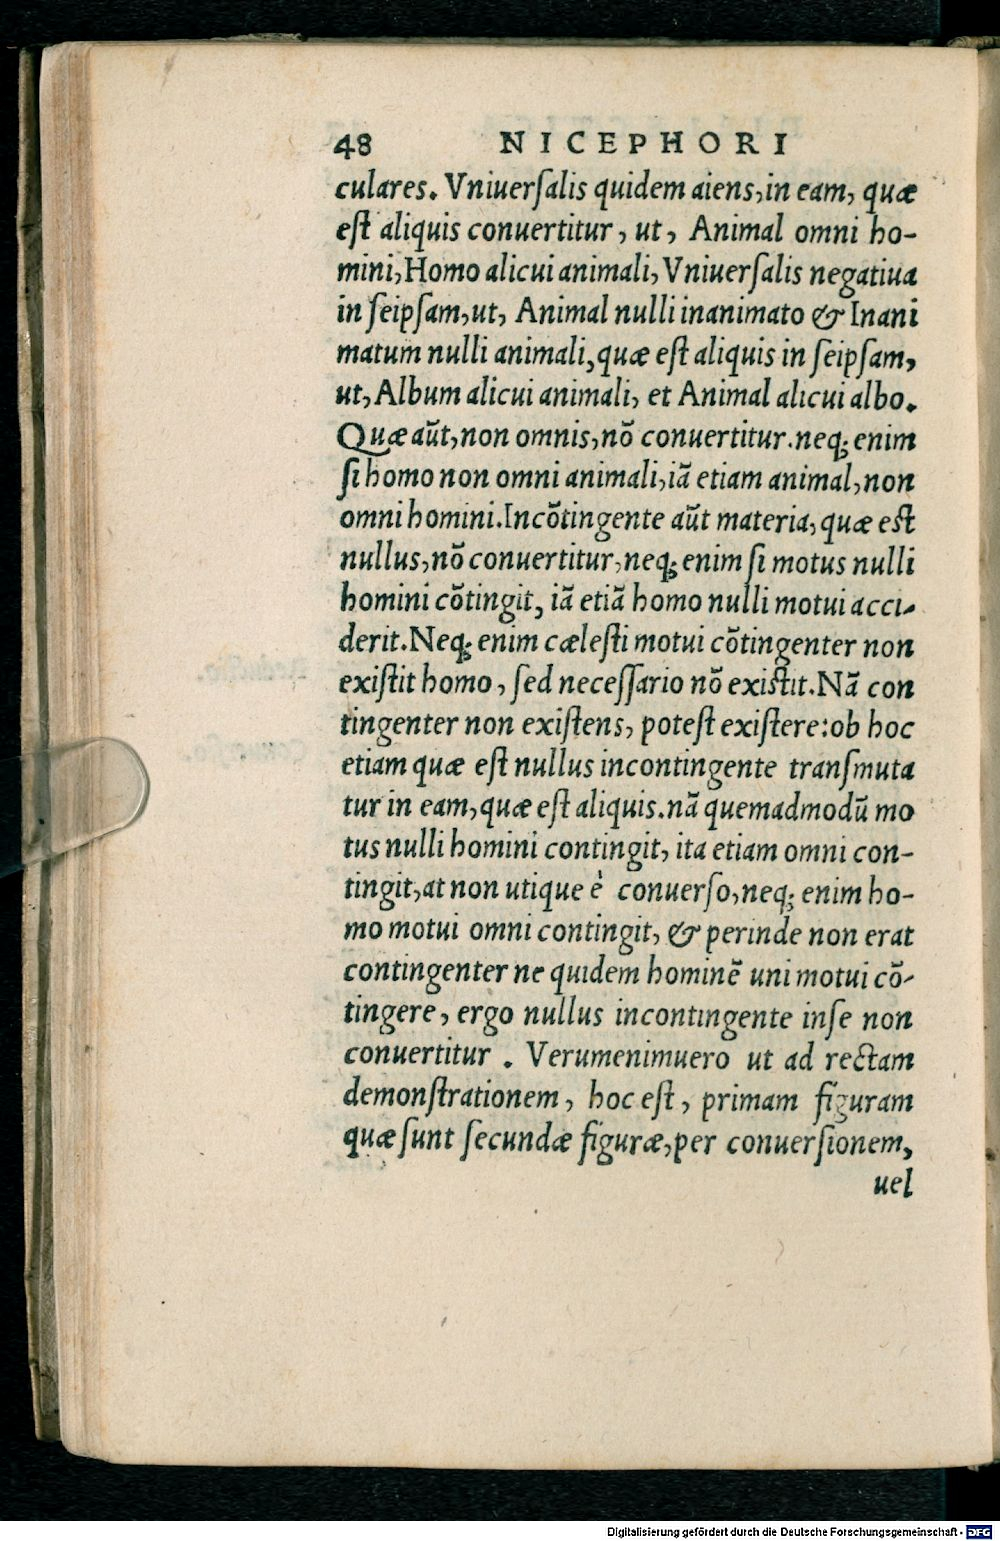 48 NICEPHORI
culares. Vniuerſalis quidem aiens, in eam, quæ
eſt aliquis conuertitur, ut, Animal omni ho-
mini, Homo alicui animali, Vniuerſalis negatiua
in ſeipſam, ut, Animal nulli inanimato & Inani
matum nulli animali, quæ eſt aliquis in ſeipſam,
ut, Album alicui animali, et Animal alicui albo.
Quæ aũt, non omnis, nõ conuertitur. neq; enim
ſi homo non omni animali, iã etiam animal, non
omni homini. Incõtingente aũt materia, quæ eſt
nullus, nõ conuertitur, neq; enim ſi motus nulli
homini cõtingit, iã etiã homo nulli motui acci-
derit. Neq; enim cæleſti motui cõtingenter non
exiſtit homo, ſed neceſſario nõ exiſtit. Nã con
tingenter non exiſtens, poteſt exiſtere: ob hoc
etiam quæ eſt nullus incontingente tranſmuta
tur in eam, quæ eſt aliquis. nã quemadmodũ mo
tus nulli homini contingit, ita etiam omni con-
tingit, at non utique è conuerſo, neq; enim ho-
mo motui omni contingit, & perinde non erat
contingenter ne quidem hominẽ uni motui cõ-
tingere, ergo nullus incontingente inſe non
conuertitur. Verumenimuero ut ad rectam
demonſtrationem, hoc eſt, primam figuram
quæ ſunt ſecundæ figuræ, per conuerſionem,
uel
Digitalisierung gefördert durch die Deutsche Forschungsgemeinschaft - DFG